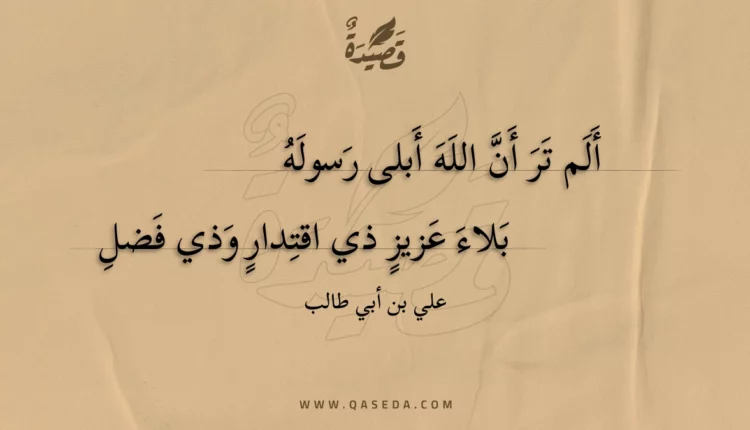 قَصِيدَةٌ
أَلَم تَرَ أَنَّ اللَهَ أَبلى رَسولَهُ
بَلاءَ عَزيزٍ ذي اقتِدارٍ وَذي فَضلِ
علي بن أبي طالب
WWW.QASEDA.COM